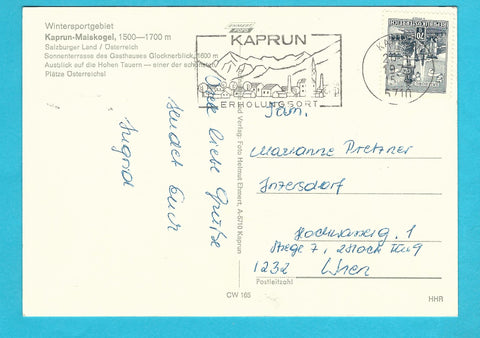 Wintersportgebiet
Kaprun-Maiskogel, 1500—1700 m
Salzburger Land / Österreich
Sonnenterrasse des Gasthauses Glocknerblick, 1600 m
Ausblick auf die Hohen Tauern — einer der schönsten
Plätze Österreichs!
Viele liebe Grüße
sendet Euch
Ingrid
KAPRUN
ERHOLUNGSORT
5710
Verlag: Foto Helmut Ehnert, A-5710 Kaprun
Fam.
Marianne Pretzner
Inzersdorf
1
Stiege 7, 2 Stock
1232 Wien
Postleitzahl
CW 165
HHR